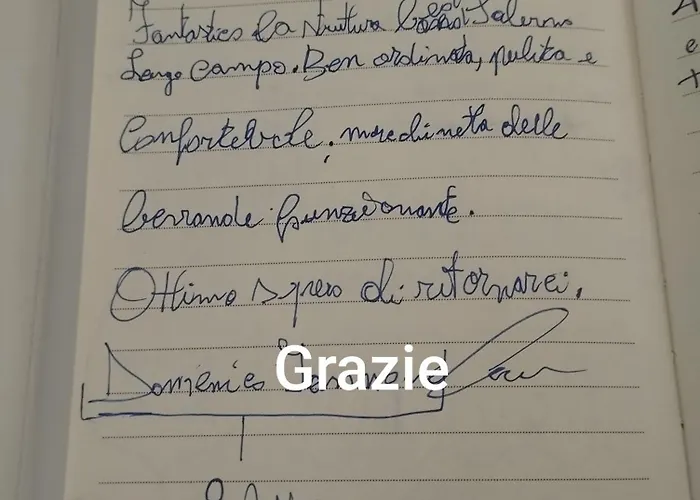 Fantastico la struttura Salerno
Largo Campo. Ben ordinata, pulita e
Confortevole. macchinetta delle
bevande funzionante.
Ottimo spero di ritornarci.
Domenico
Grazie